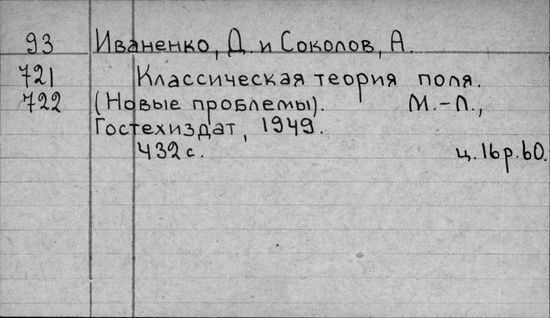 93 Иваненко, Д. и Соколов, А.
721 Классическая теория поля.
722 (Новые проблемы). М.-Л.,
Гостехиздат, 1949.
432 с. ц. 16 р. 60.